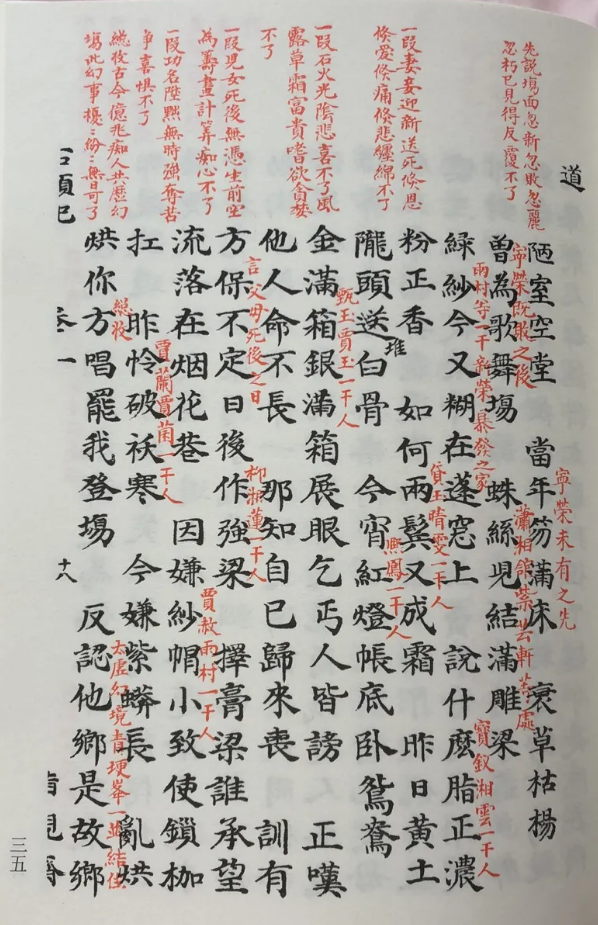 先說塲面忽新忽敗忽麗
忽朽已見得反覆不了
一叚妻妾迎新送死倏恩
倏愛倏痛倏悲纏綿不了
一叚石火光陰悲喜不了風
露草霜富貴嗜欲貪婪
不了
一叚児女死後無憑生前空
為籌畫計算痴心不了
一叚功名陞黜無時强奪苦
争喜惧不了
總收古今億兆痴人共歴幻
塲此幻事擾〻紛〻無日可了
道
陋室空堂 當年笏滿床 衰草枯楊
寧榮未有之先
寧榮既敗之後
曽為歌舞塲 蛛絲児結滿雕梁
瀟湘舘紫芸軒等處
雨村等一干新榮暴發之家
緑紗今又糊在蓬窓上 說什麽脂正濃
寶釵湘雲一干人
粉正香 如何兩鬂又成霜 昨日黄土
堆
貸玉晴雯一干人
隴頭送白骨 今宵紅燈帳底卧鴛鴦
熙鳳一干人
甄玉賈玉一干人
金滿箱銀滿箱展眼乞丐人皆謗 正嘆
他人命不長 那知自已歸來喪 訓有
言父母死後之日
方保不定日後作強梁 擇膏梁誰承望
柳湘蓮一干人
流落在烟花巷 因嫌紗帽小致使鎖枷
賈赦雨村一干人
賈蘭賈菌一干人
扛 昨怜破袄寒 今嫌紫蟒長 亂烘
總收
太虛幻境青埂峯一並結住
烘你方唱罷我登塲 反認他鄉是故鄉
石頭記 卷一 十八
三五